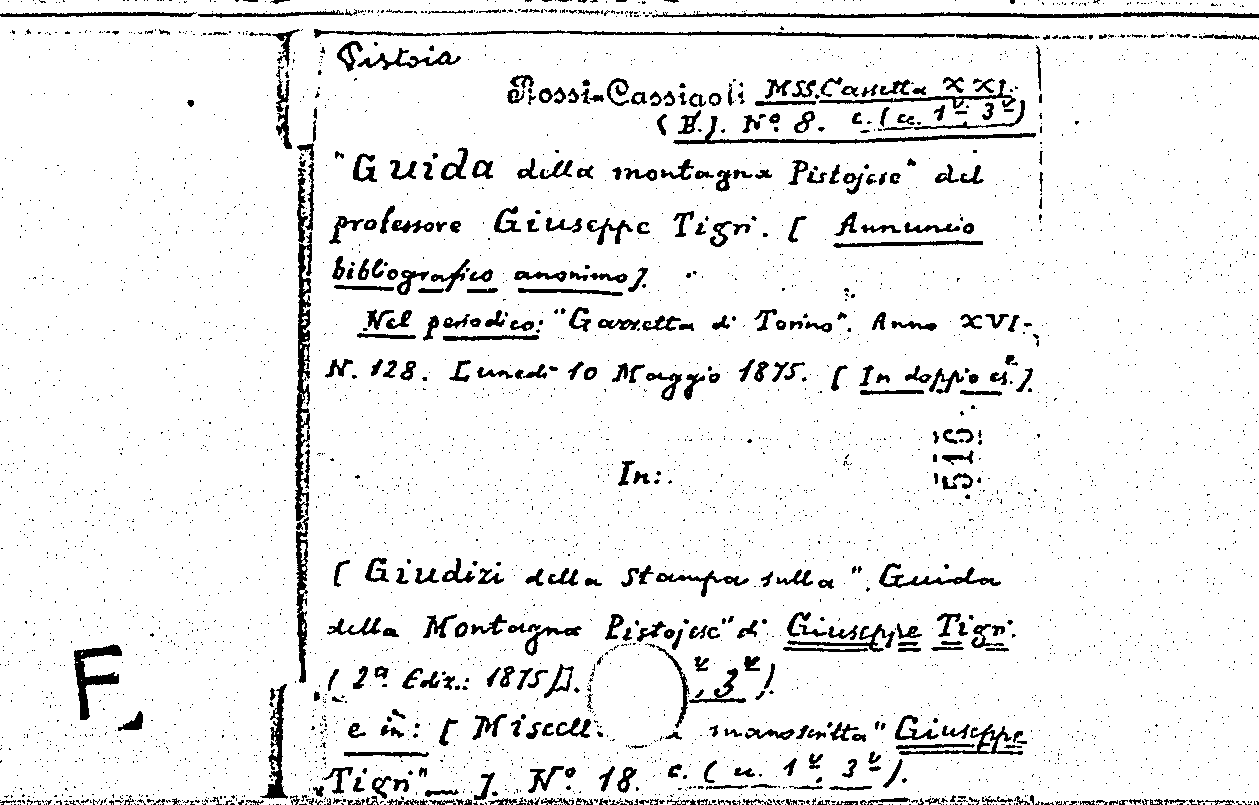 Pistoia
Rossi-Cassigoli MSS. Cassetta XXI.
(B.). Nº 8. c. (cc. 1v, 3v)
"Guida della montagna Pistojese" del
professore Giuseppe Tigri. [ Annuncio
bibliografico anonimo].
Nel periodico: "Gazzetta di Torino". Anno XVI.
N. 128. Lunedì 10 Maggio 1875. [ In doppio es.].
516
In:
[ Giudizi della stampa sulla "Guida
della Montagna Pistojese" di Giuseppe Tigri.
( 2ª Ediz.: 1875)]. v, 3v).
e in: [ Miscell. manoscritta "Giuseppe
Tigri" ]. Nº 18. c. (cc. 1v, 3v).
F